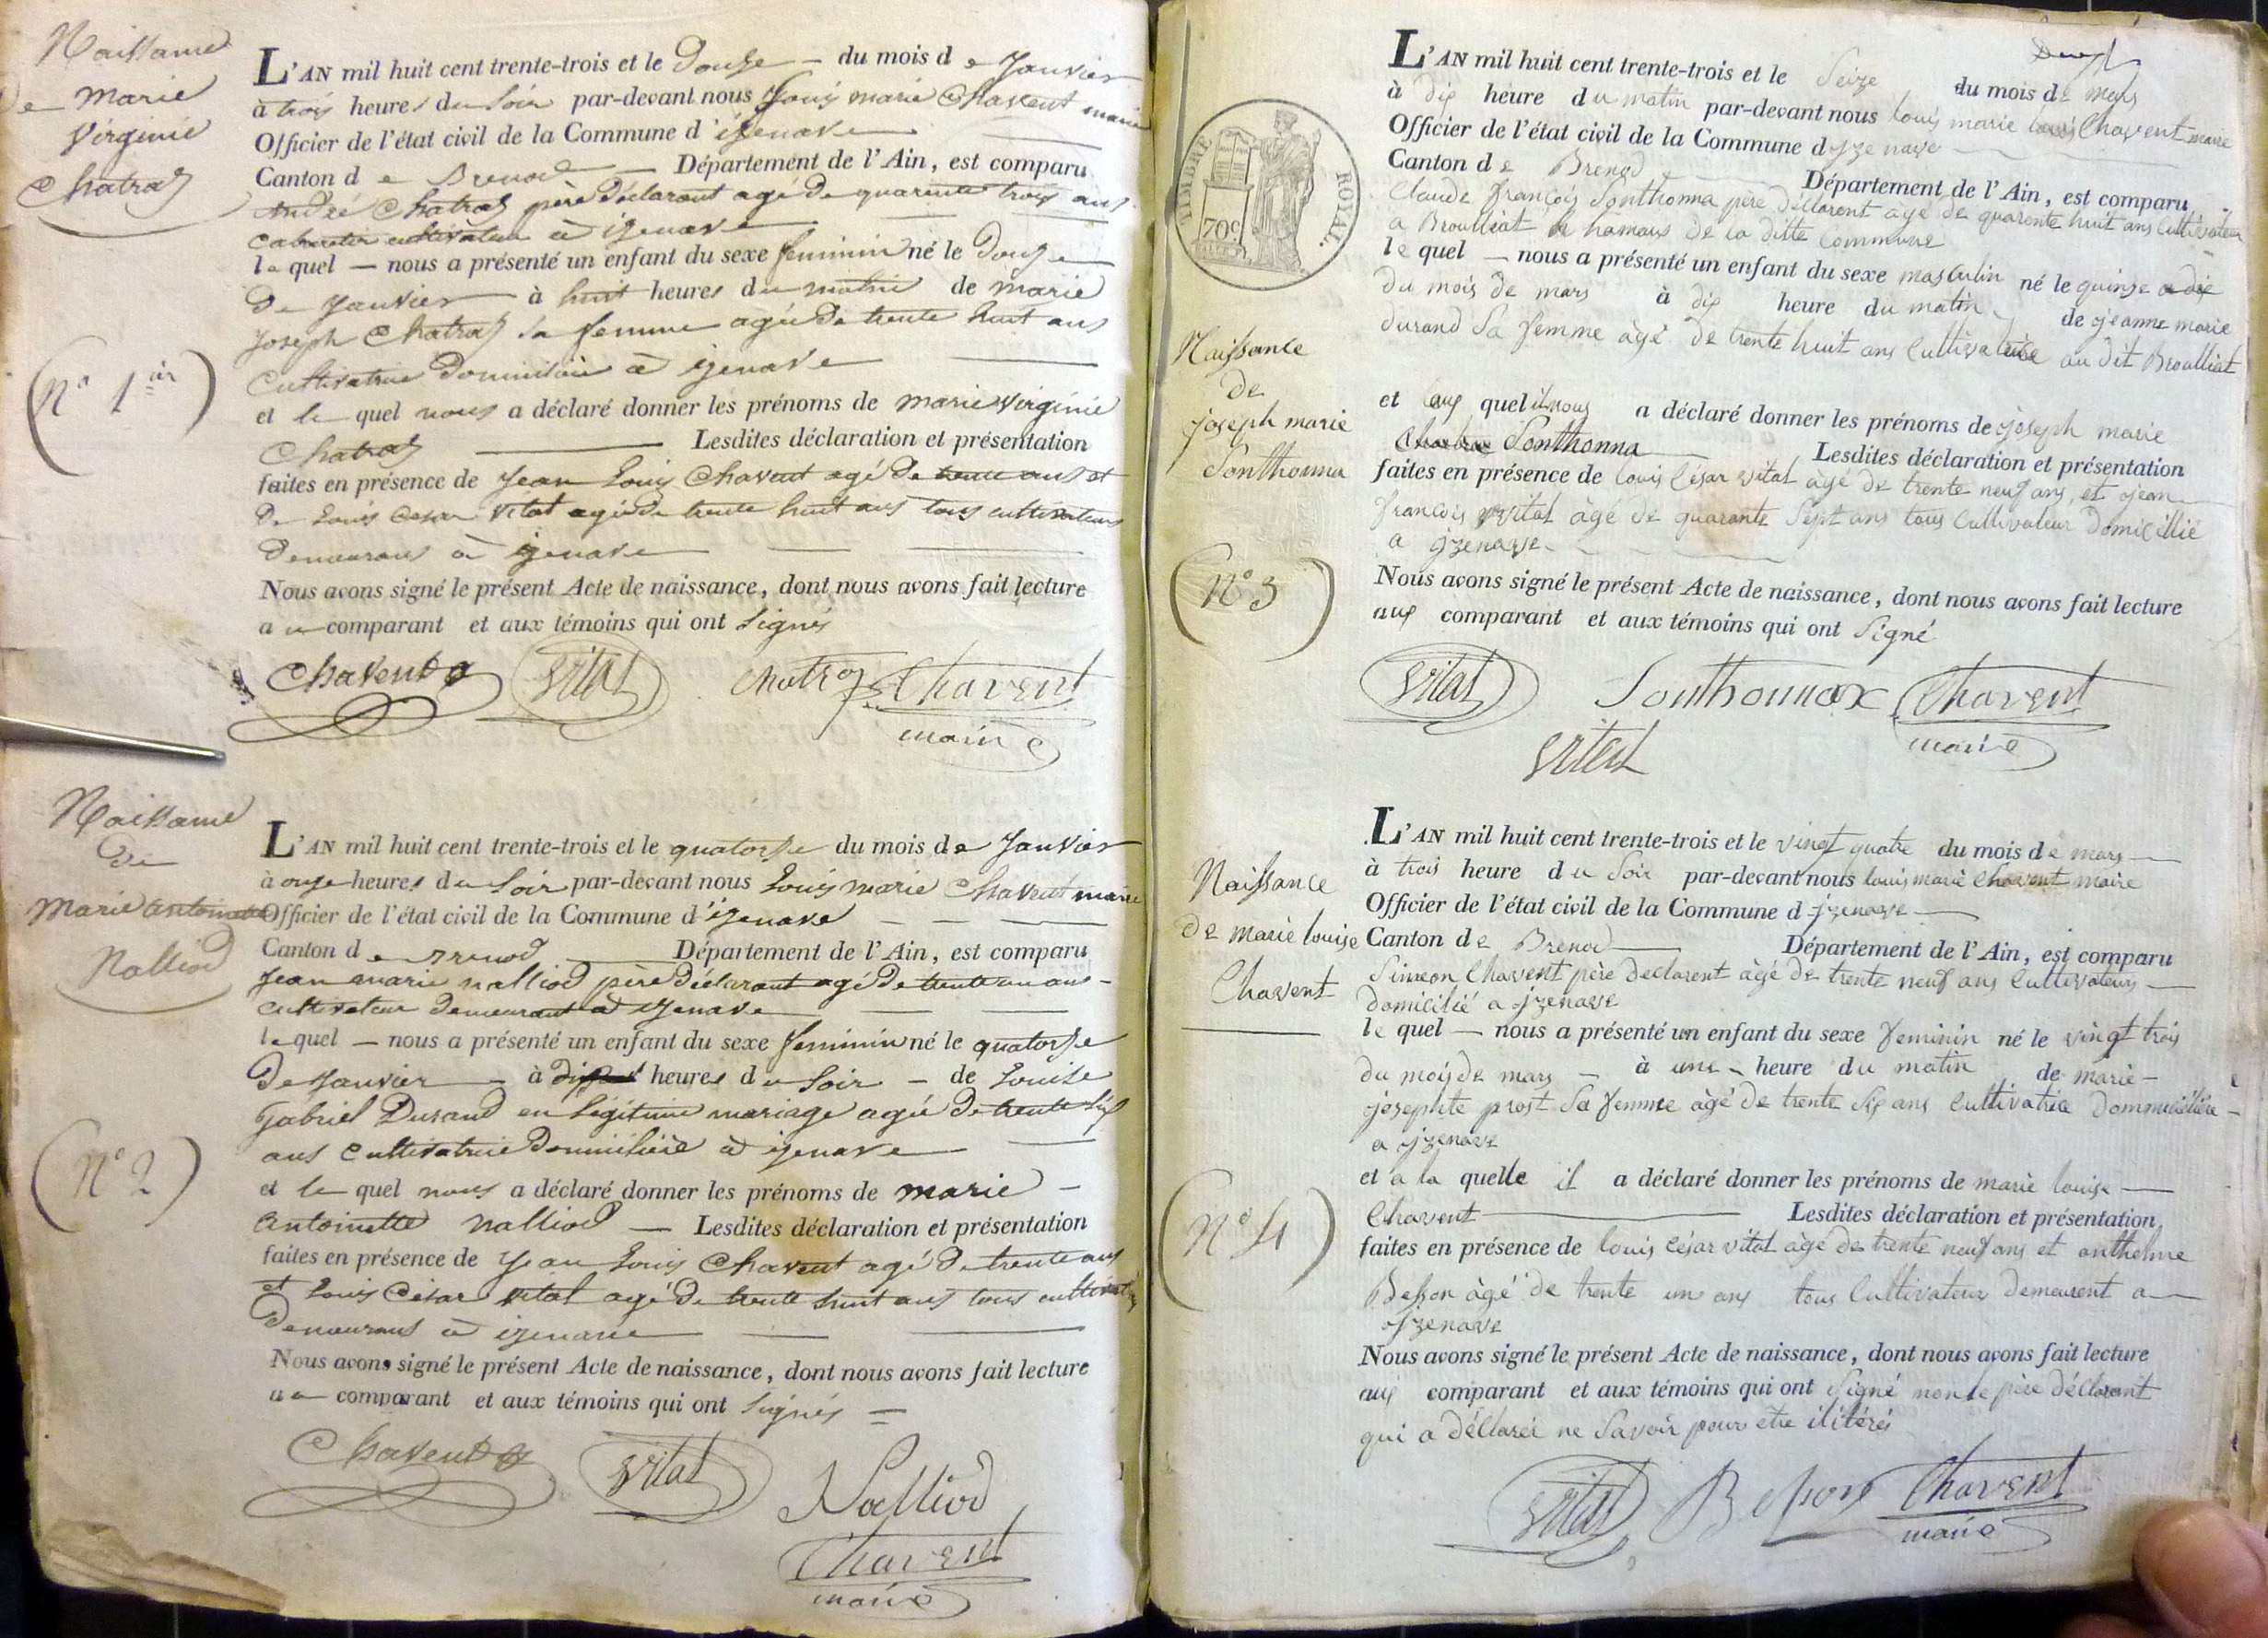 Naissance
de Marie
Virginie
Chatraz
(N° 1er)
L'AN mil huit cent trente-trois et le Douze — du mois de Janvier
à trois heures du soir par-devant nous Louis marie Chavent maire
Officier de l'état civil de la Commune d'izenave
Canton de Brenod — Département de l'Ain, est comparu
André Chatraz père Déclarant agé De quarente trois ans
cabaretier cultivateur à izenave
lequel — nous a présenté un enfant du sexe feminin né le Douze
De Janvier à huit heures du matin de marie
Joseph Chatraz sa femme agée De trente huit ans
Cultivatrice Domiciliée à izenave
et le quel nous a déclaré donner les prénoms de marie Virginie
Chatraz — Lesdites déclaration et présentation
faites en présence de Jean Louis Chavent agé De trente ans et
De Louis Cesar Vital agé De trente huit ans tous cultivateurs
Demeurans à izenave
Nous avons signé le présent Acte de naissance, dont nous avons fait lecture
au comparant et aux témoins qui ont signés
Chavent Vital Chatraz Chavent
maire
Naissance
De
Marie antoinette
Nalliod
(N° 2)
L'AN mil huit cent trente-trois et le quatorze du mois de Janvier
à onze heures du soir par-devant nous Louis marie Chavent maire
Officier de l'état civil de la Commune d'izenave
Canton de Brenod — Département de l'Ain, est comparu
Jean marie nalliod père Déclarant agé De trente un ans
cultivateur Demeurant à izenave
lequel — nous a présenté un enfant du sexe feminin né le quatorze
De Janvier — à dix heures du soir — de Louise
Gabriel Durand en légitime mariage agée De trente six
ans Cultivatrice Domiciliée à izenave
et le quel nous a déclaré donner les prénoms de marie —
antoinette nalliod — Lesdites déclaration et présentation
faites en présence de Jean Louis Chavent agé De trente ans
et Louis César Vital agé De trente huit ans tous cultivateurs
Demeurans à izenave
Nous avons signé le présent Acte de naissance, dont nous avons fait lecture
au comparant et aux témoins qui ont signés =
Chavent Vital Nalliod
Chavent
maire
TIMBRE ROYAL.
70c
Naissance
de
joseph marie
Sonthonna
(N° 3)
L'AN mil huit cent trente-trois et le Seize du mois de mars
à dix heure du matin par-devant nous louis marie Chavent maire
Officier de l'état civil de la Commune d jzenave
Canton de Brenod Département de l'Ain, est comparu
Claude françois Sonthonna père déclarent àgé de quarente huit ans Cultivateur
a Broulliat hamaus de la ditte Commune
le quel — nous a présenté un enfant du sexe masculin né le quinze
du mois de mars à dix heure du matin de jeanne marie
durand Sa femme àgé de trente huit ans Cultivatrice au dit Broulliat
et aux quel il nous a déclaré donner les prénoms de joseph marie
Sonthonna Lesdites déclaration et présentation
faites en présence de louis César vital àgé de trente neuf ans, et jean
françois vital àgé de quarante Sept ans tous Cultivateur Domicillié
a jzenave
Nous avons signé le présent Acte de naissance, dont nous avons fait lecture
aux comparant et aux témoins qui ont Signé
Vital Sonthonnax Chavent
vital maire
Naissance
de marie louise
Chavent
(N° 4)
L'AN mil huit cent trente-trois et le vingt quatre du mois de mars
à trois heure du Soir par-devant nous louis marie Chavent maire
Officier de l'état civil de la Commune d jzenave
Canton de Brenod Département de l'Ain, est comparu
Simeon Chavent père declarent àgé de trente neuf ans Cultivateurs
domicilié a jzenave
le quel — nous a présenté un enfant du sexe feminin né le vingt trois
du mois de mars — à une heure du matin de marie —
josephte prost Sa femme àgé de trente Six ans Cultivatrice
a jzenave
et a la quelle il a déclaré donner les prénoms de marie louise
Chavent Lesdites déclaration et présentation
faites en présence de louis César vital àgé de trente neuf ans et anthelme
Besson àgé de trente un ans tous Cultivateur demeurent a
jzenave
Nous avons signé le présent Acte de naissance, dont nous avons fait lecture
aux comparant et aux témoins qui ont Signé non le père déclarent
qui a déclaréé ne Savoir pour etre ilitérés
Vital Besson Chavent
maire